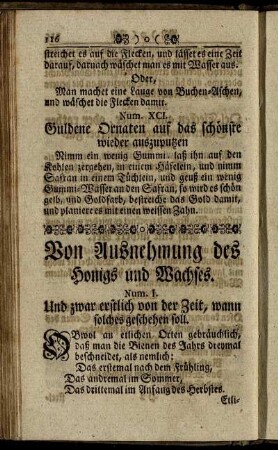 116
streichet es auf die Flecken, und lässet es eine Zeit
darauf, darnach wäschet man es mit Wasser aus.
Oder,
Man machet eine Lauge von Buchen-Aschen,
und wäschet die Flecken damit.
Num. XCI.
Guldene Ornaten auf das schönste
wieder auszuputzen
Nimm ein wenig Gummi, laß ihn auf den
Kohlen zergehen, in einem Häfelein, und nimm
Safran in einem Tüchlein, und geuß ein wenig
Gummi-Wasser an den Safran, so wird es schön
gelb, und Goldfarb, bestreiche das Gold damit,
und planiere es mit einen weissen Zahn.
Von Ausnehmung des
Honigs und Wachses.
Num. I.
Und zwar erstlich von der Zeit, wann
solches geschehen soll.
OBwol an etlichen Orten gebräuchlich,
daß man die Bienen des Jahrs dreymal
beschneidet, als nemlich:
Das erstemal nach dem Frühling,
Das andremal im Sommer,
Das drittemal im Anfang des Herbstes.
Etli-